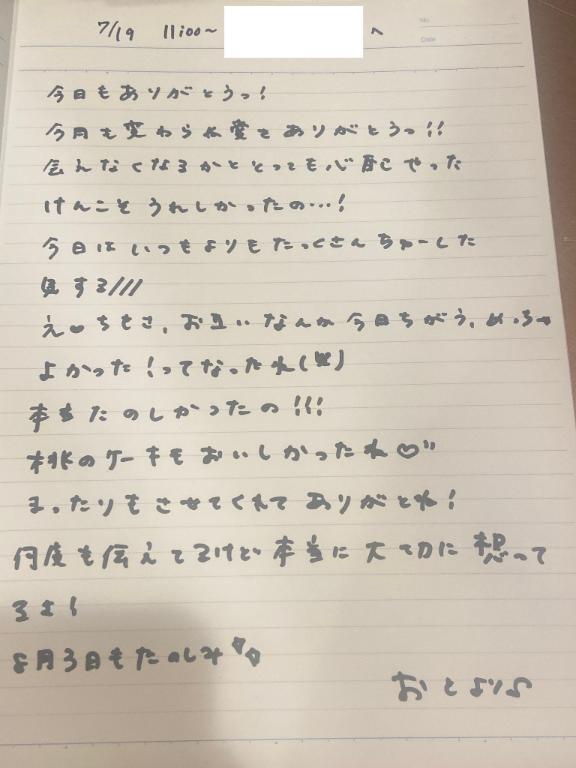 7/19 11:00~ へ
No.
Date
今日もありがとうっ!
今月も変わらぬ愛をありがとうっ!!
会えなくなるかととっても心配やった
けんこそうれしかったの…!
今日はいつもよりもたっくさんちゅーした
気する///
え♡ちもさ、お互いなんか今日ちがう、めっちゃ
よかった!ってなったね
本当たのしかったの!!!
桃のケーキもおいしかったね♡"
まったりもさせてくれてありがとね!
何度も伝えてるけど本当に大切に想って
るよ!
8月3日もたのしみ
おとより♪